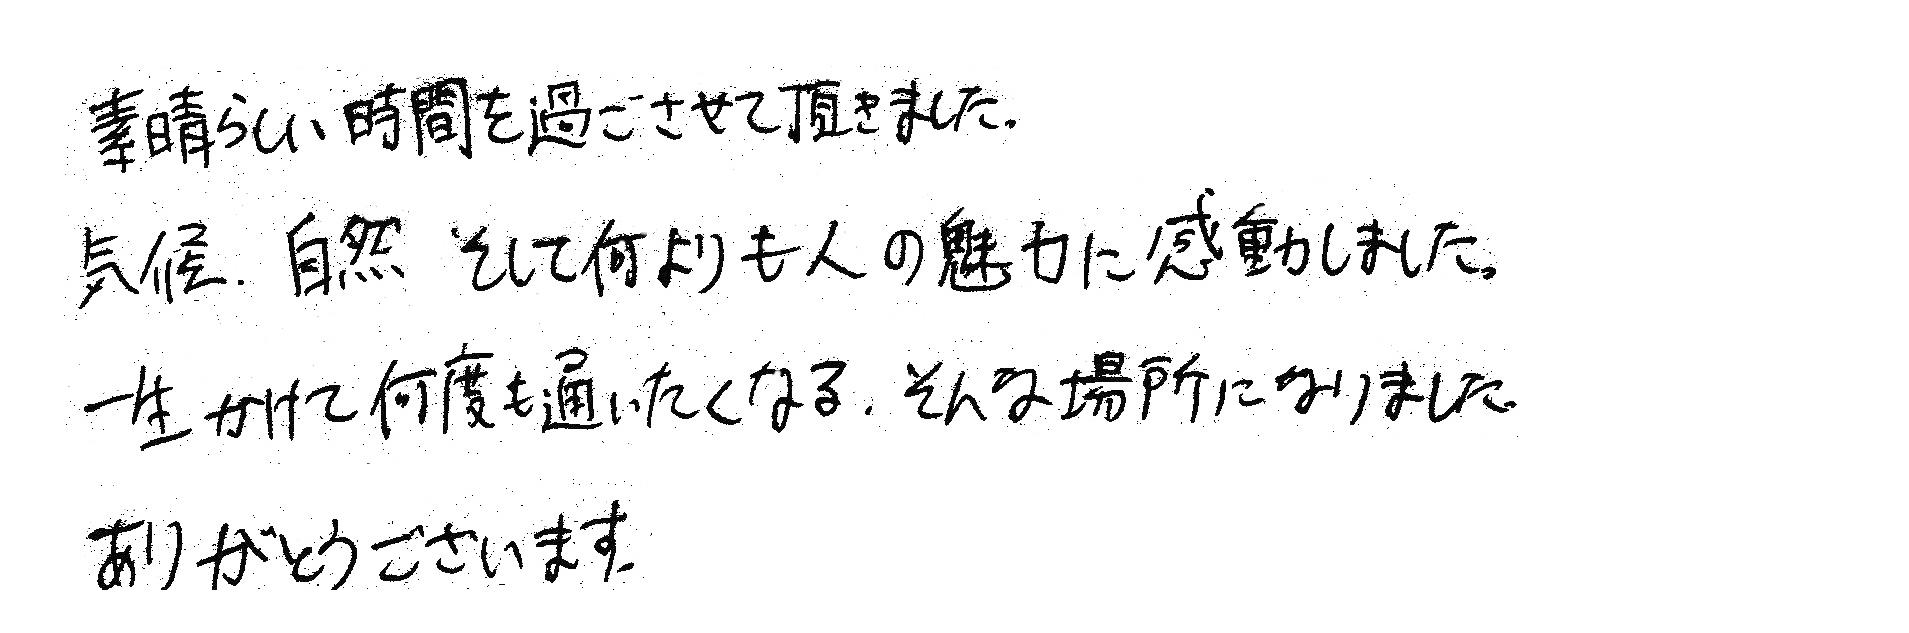 素晴らしい時間を過ごさせて頂きました。
気候、自然 そして何よりも人の魅力に感動しました。
一生かけて何度も通いたくなる、そんな場所になりました。
ありがとうございます。